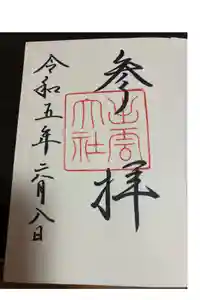 参拝
出雲
大社
令和五年月八日